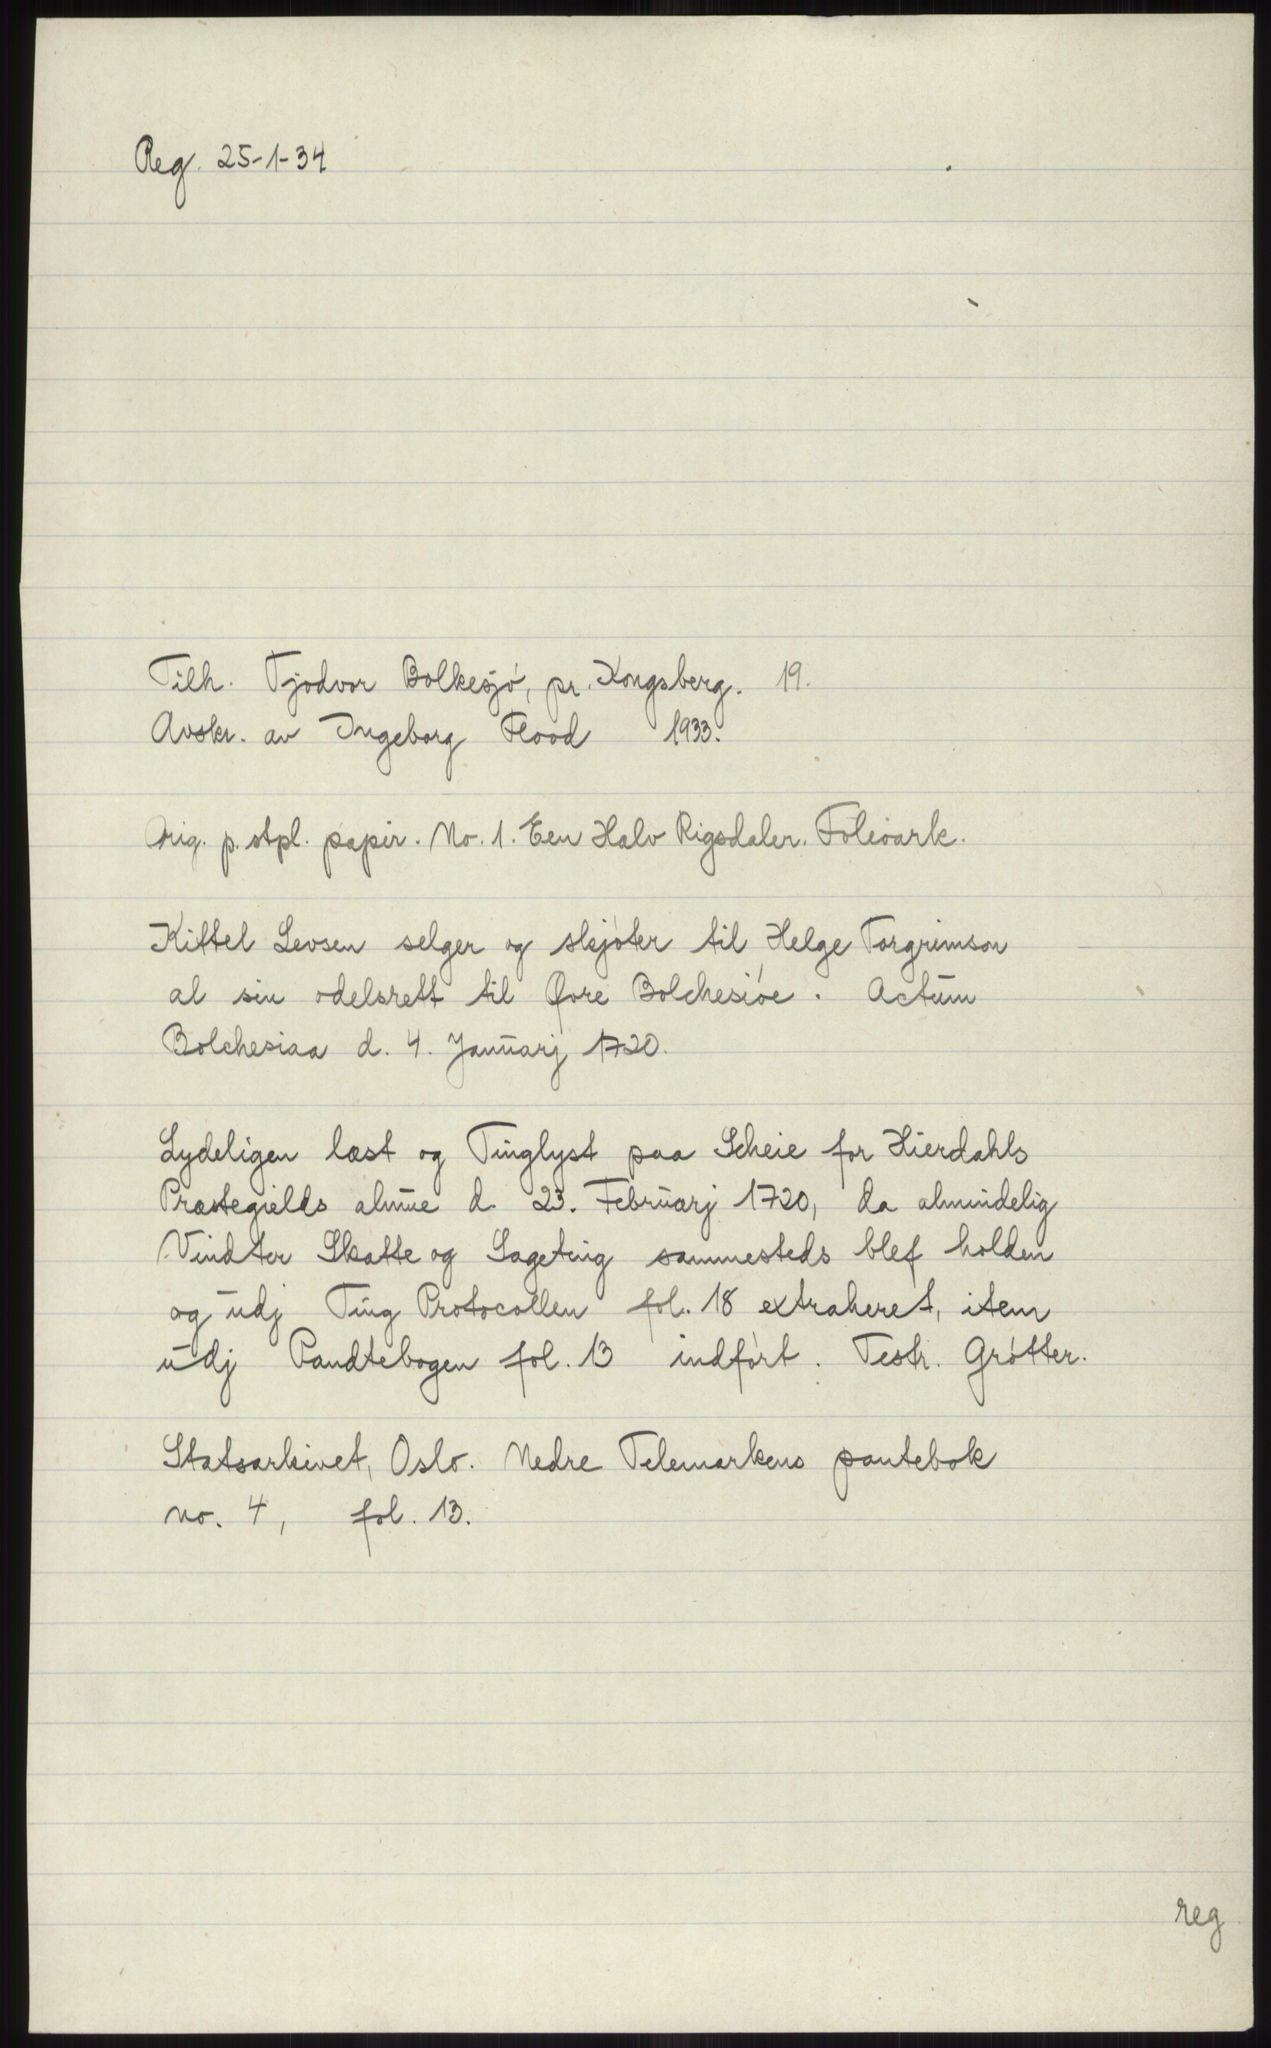 Reg. 25-1-34
Tilh. Tjodvor Bolkesjó, pr. Kongsberg. 19.
Avskr. av Ingeborg Flood 1933.
Orig. p. stpl. papir. No. 1. Een Halv Rigsdaler. Folioark.
Kittel Levsen selger og skjóter til Helge Torgrimson
al sin odelsrett til Øvre Bolchesióe. Actŭm
Bolchesiaa d. 4. Janŭarj 1720.
Lydeligen læst og Tinglyst paa Scheie for Hierdahls
Præstegields almŭe d. 23. Febrŭarj 1720, da almindelig
Vindter Skatte og Sageting sammesteds blef holden
og ŭdj Ting Protocollen fol. 18 extraheret, item
ŭdj Pandtebogen fol. 13 indfórt. Testr. Grótter.
Statsarkivet, Oslo. Nedre Telemarkens pantebok
no. 4, fol. 13.
reg